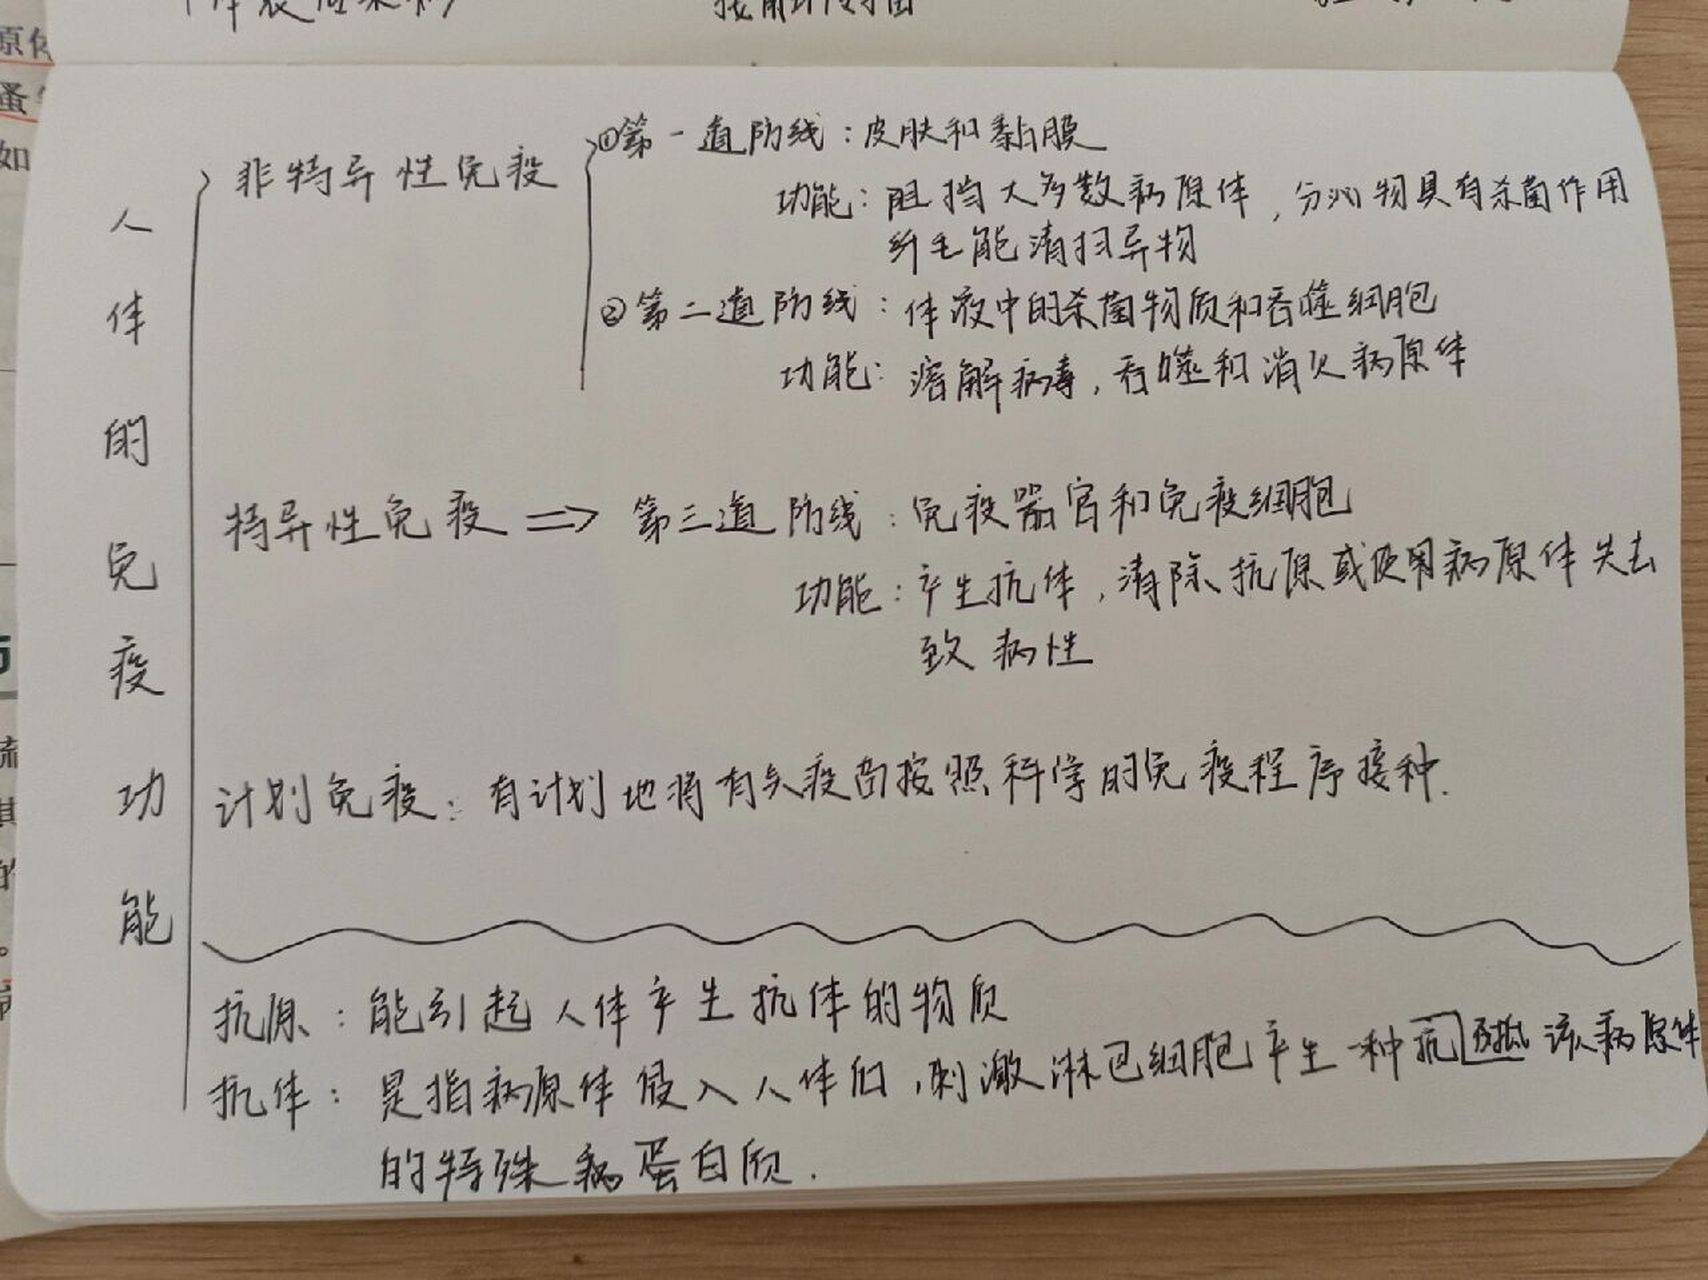 人体的免疫功能
非特异性免疫
①第一道防线：皮肤和黏膜
功能：阻挡大多数病原体，分泌物具有杀菌作用
纤毛能清扫异物
②第二道防线：体液中的杀菌物质和吞噬细胞
功能：溶解病毒，吞噬和消灭病原体
特异性免疫 => 第三道防线：免疫器官和免疫细胞
功能：产生抗体，清除抗原或使病原体失去
致病性
计划免疫：有计划地将有关疫苗按照科学的免疫程序接种.
抗原：能引起人体产生抗体的物质
抗体：是指病原体侵入人体后，刺激淋巴细胞产生一种抗 该病原体
的特殊 蛋白质.
原体
如